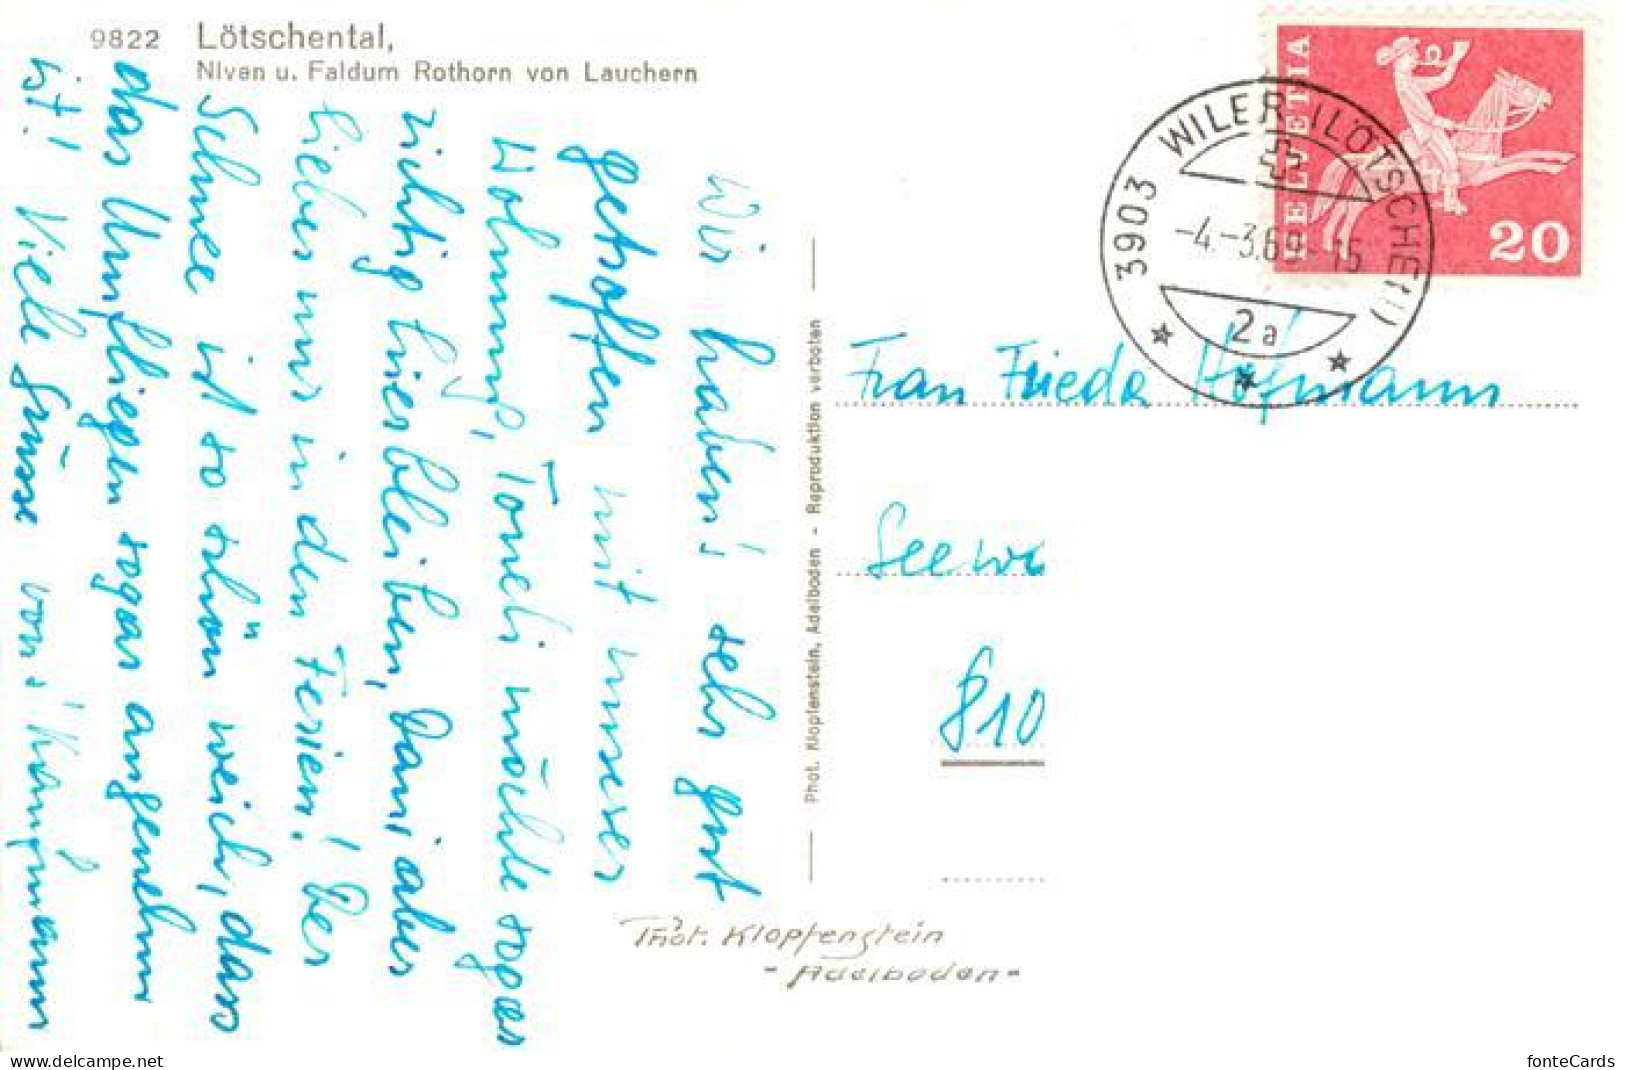 9822 Lötschental,
Niven u. Faldum Rothorn von Lauchern
Wir haben's sehr gut
getroffen mit unserer
Wohnung, Toneli möchte sogar
richtig hierbleiben, Dani aber
lieber nur in den Ferien! Der
Schnee ist so schön weich, dass
das Umfliegen sogar angenehm
ist! Viele Grüsse von
Phot. Klopfenstein, Adelboden - Reproduktion verboten
HELVETIA
20
3903 WILER (LÖTSCHEN)
-4.-3.69-15
2a
Frau Frieda Hofmann
Seewe
810
Phot. Klopfenstein
- Adelboden -
www.delcampe.net
fonteCards